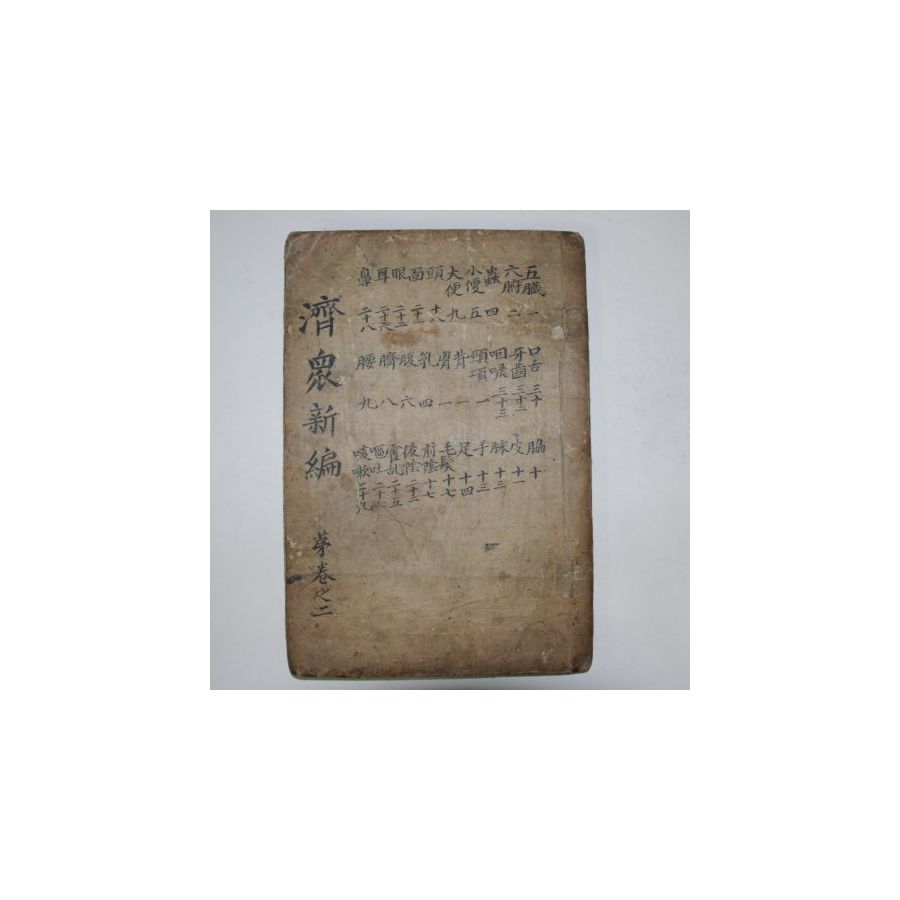 五臟 一
六腑 二
蟲 四
小便 五
大便 九
頭 十八
面 二十一
眼 二十二
耳 二十六
鼻 二十八
口舌 三十
牙齒 三十二
咽喉 三十三
頸項 一
背 一
胷 一
乳 四
腹 六
臍 八
腰 九
脇 十
皮 十一
手 十三
足 十四
毛髮 十七
前陰 十七
後陰 二十二
霍乱 二十五
嘔吐
咳嗽 二十九
濟衆新編
苐卷之二